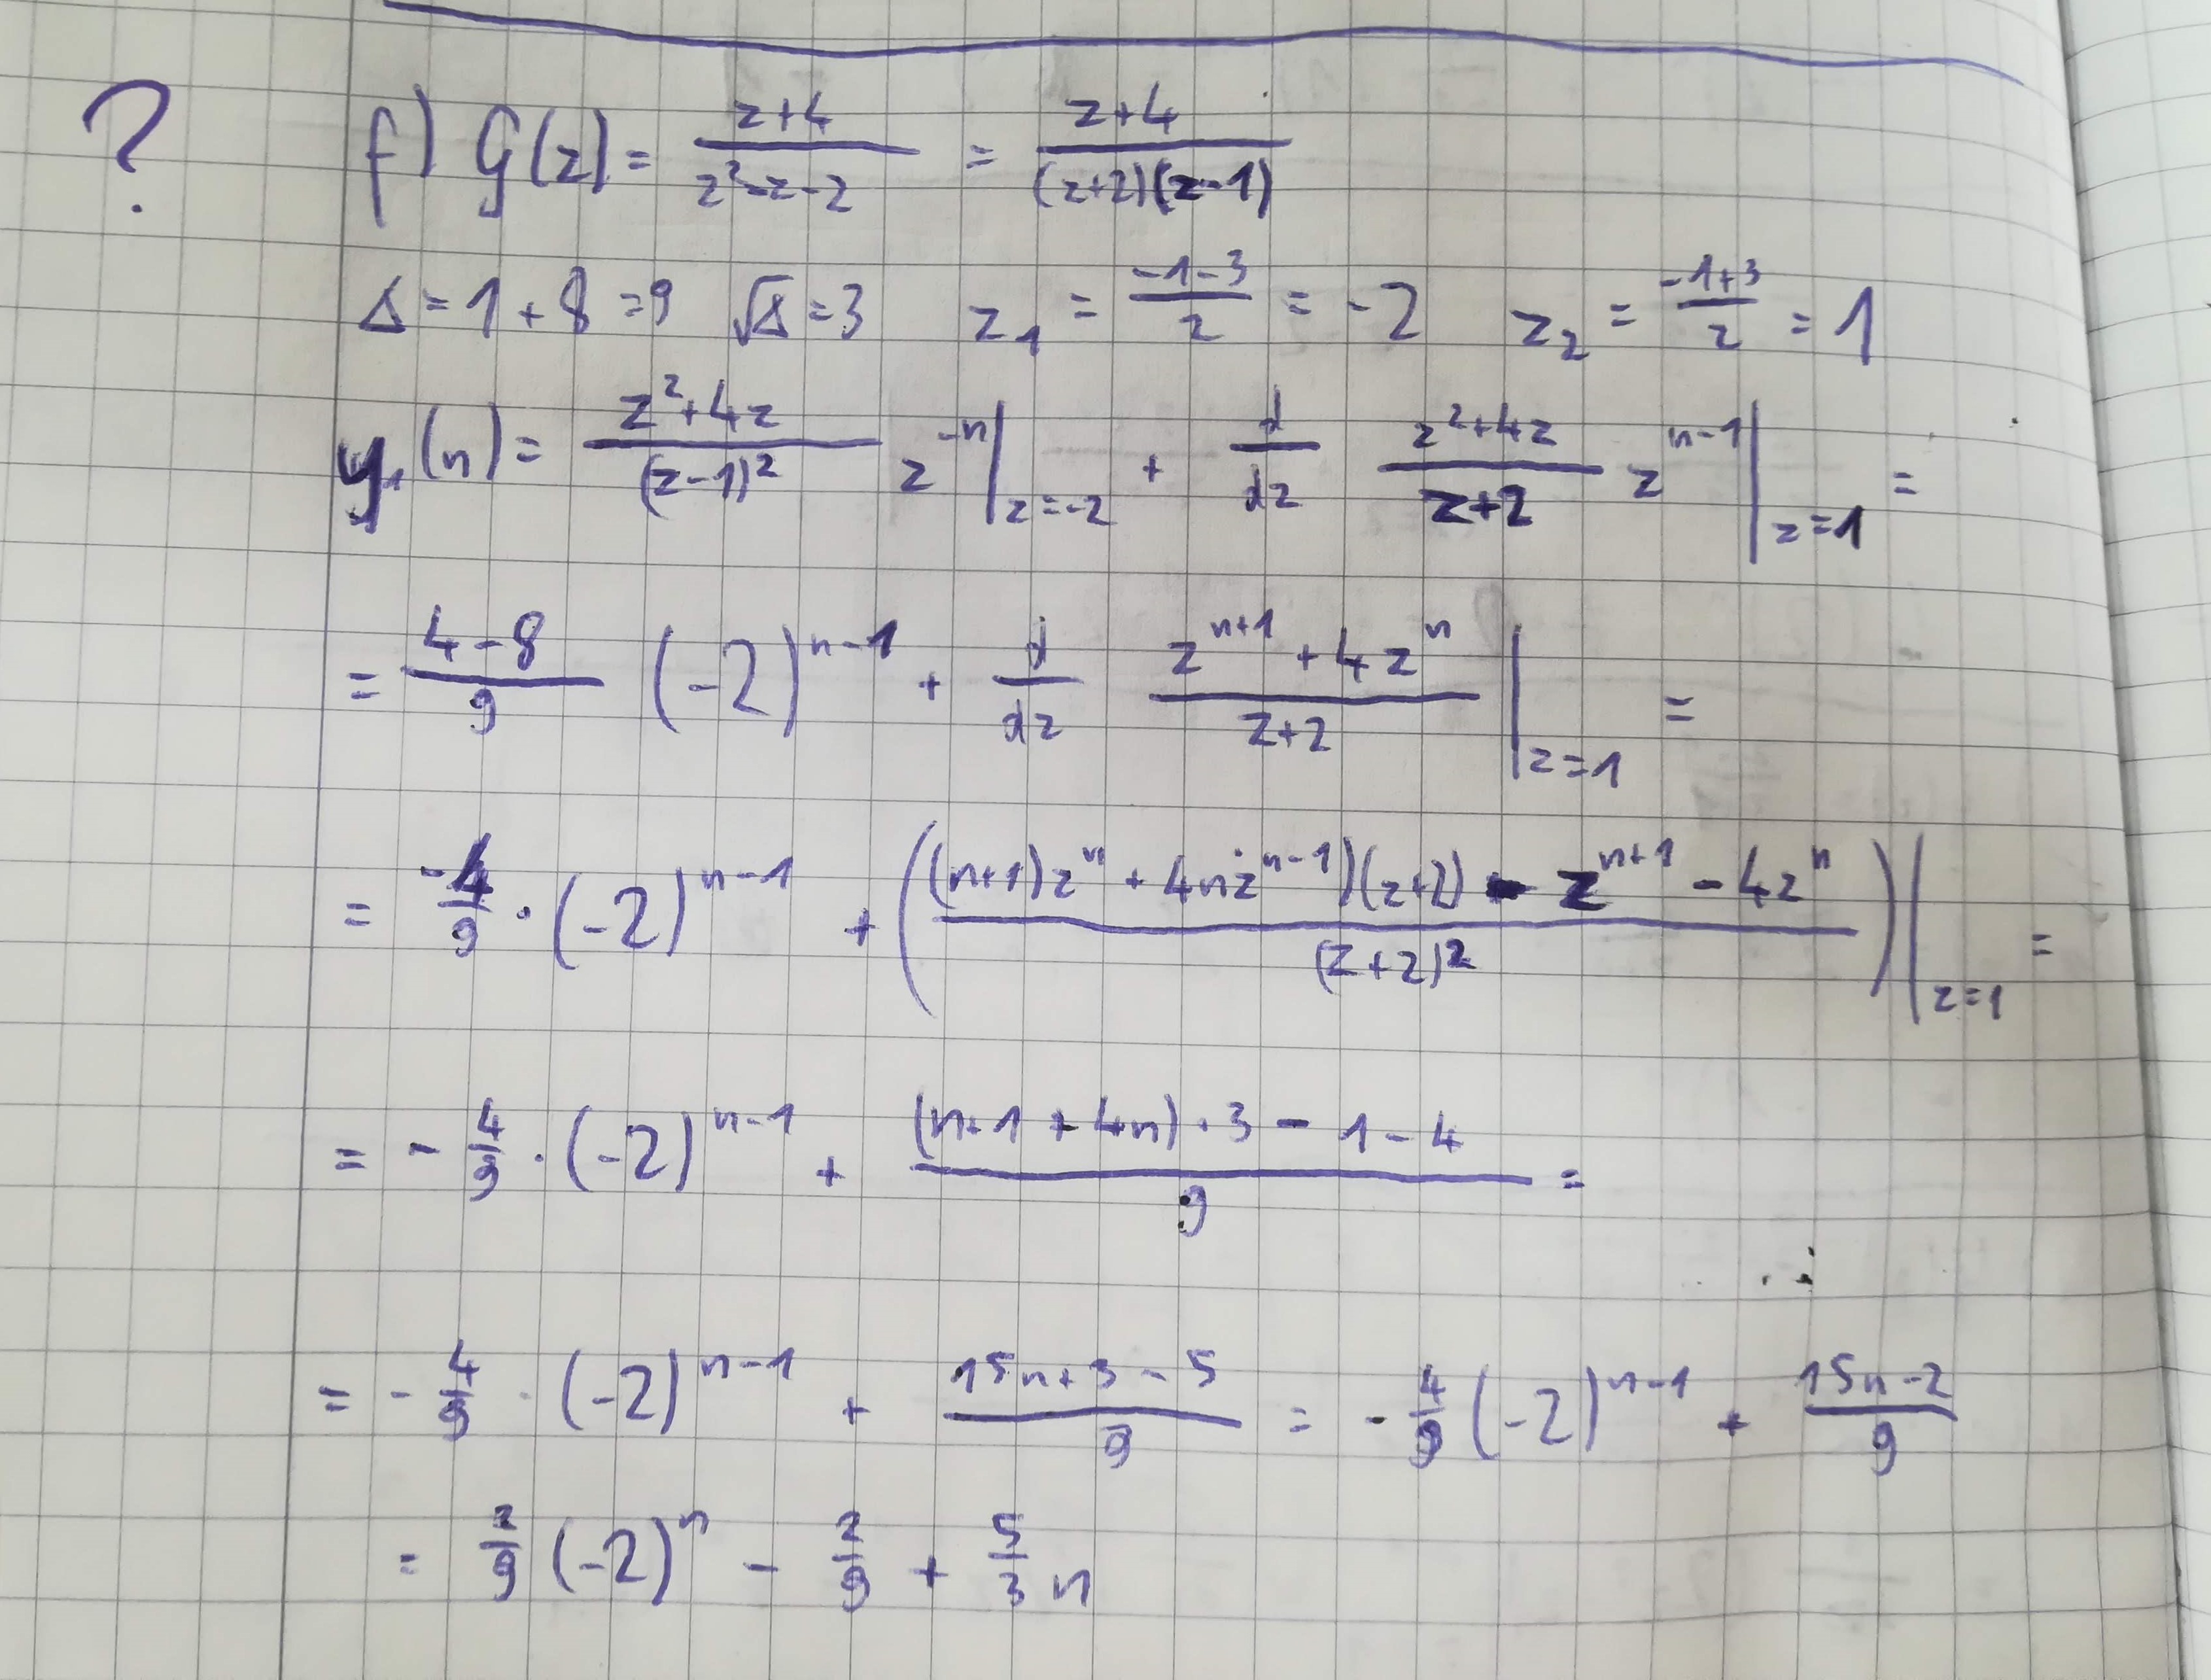 ?
f) G(z) = \frac{z+4}{z^2-z-2} = \frac{z+4}{(z+2)(z-1)}
Δ = 1 + 8 = 9 √Δ = 3 z_1 = \frac{-1-3}{2} = -2 z_2 = \frac{-1+3}{2} = 1
y_1(n) = \frac{z^2+4z}{(z-1)^2} z^{-n} |_{z=-2} + \frac{d}{dz} \frac{z^2+4z}{z+2} z^{n-1} |_{z=1} =
= \frac{4-8}{9} (-2)^{n-1} + \frac{d}{dz} \frac{z^{n+1} + 4z^n}{z+2} |_{z=1} =
= \frac{-4}{9} · (-2)^{n-1} + (\frac{((n+1)z^n + 4nz^{n-1})(z+2) - z^{n+1} - 4z^n}{(z+2)^2}) |_{z=1} =
= - \frac{4}{9} · (-2)^{n-1} + \frac{(n+1 + 4n) · 3 - 1 - 4}{9} =
= - \frac{4}{9} · (-2)^{n-1} + \frac{15n+3-5}{9} = - \frac{4}{9} (-2)^{n-1} + \frac{15n-2}{9}
= \frac{2}{9} (-2)^n - \frac{2}{9} + \frac{5}{3} n